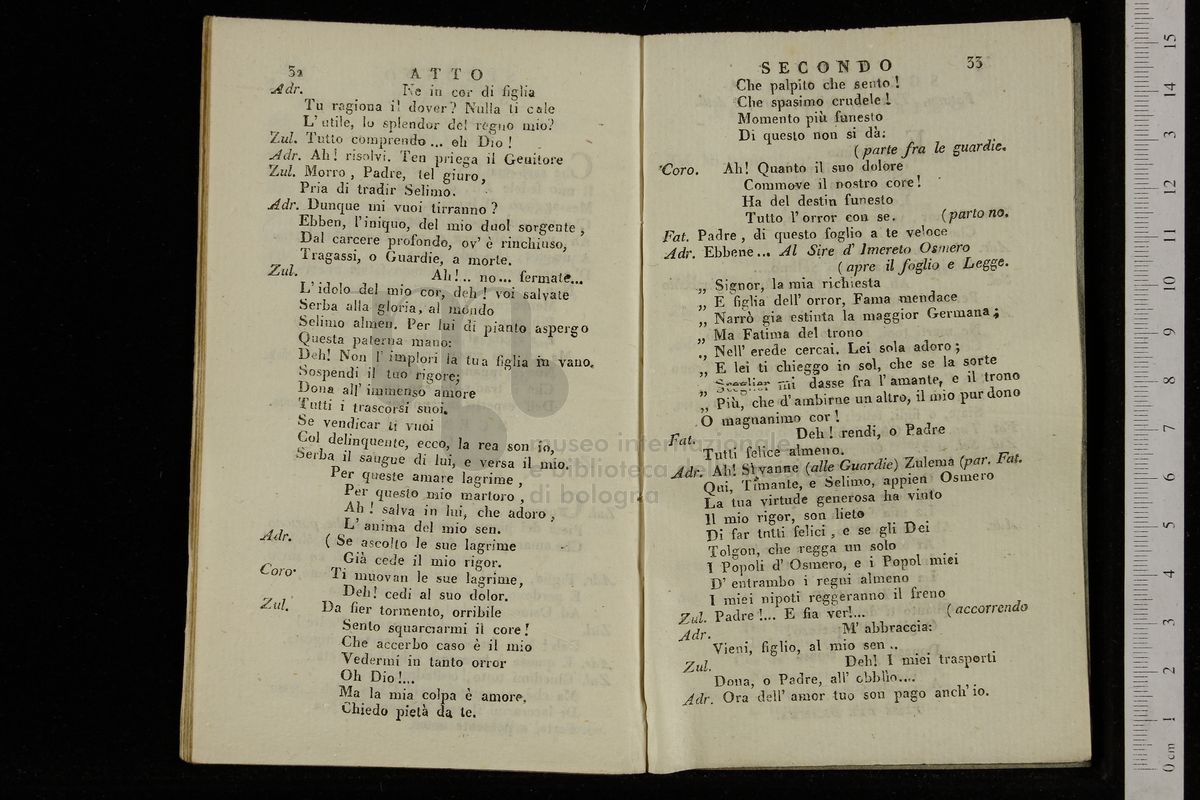 32 ATTO
Adr. Ne in cor di figlia
Tu ragiona il dover? Nulla ti cale
L'utile, lo splendor del regno mio?
Zul. Tutto comprendo ... oh Dio !
Adr. Ah! risolvi. Ten priega il Genitore
Zul. Morro , Padre, tel giuro,
Pria di tradir Selimo.
Adr. Dunque mi vuoi tirranno ?
Ebben, l'iniquo, del mio duol sorgente ,
Dal carcere profondo, ov' è rinchiuso,
Tragassi, o Guardie, a morte.
Zul. Ah!... no... fermate...
L'idolo del mio cor, deh ! voi salvate
Serba alla gloria, al mondo
Selimo almen. Per lui di pianto aspergo
Questa paterna mano:
Deh! Non l'implori la tua figlia in vano.
Sospendi il tuo rigore;
Dona all' immenso amore
Tutti i trascorsi suoi.
Se vendicar ti vuoi
Col delinquente, ecco, la rea son io,
Serba il sangue di lui, e versa il mio.
Per queste amare lagrime ,
Per questo mio martoro ,
Ah ! salva in lui, che adoro ,
L'anima del mio sen.
Adr. ( Se ascolto le sue lagrime
Già cede il mio rigor.
Coro Ti muovan le sue lagrime,
Deh! cedi al suo dolor.
Zul. Da fier tormento, orribile
Sento squarciarmi il core!
Che accerbo caso è il mio
Vedermi in tanto orror
Oh Dio!...
Ma la mia colpa è amore,
Chiedo pietà da te.
SECONDO 33
Che palpito che sento !
Che spasimo crudele !
Momento più funesto
Di questo non si dà:
( parte fra le guardie.
Coro. Ah! Quanto il suo dolore
Commove il nostro core!
Ha del destin funesto
Tutto l'orror con se. ( parto no.
Fat. Padre , di questo foglio a te veloce
Adr. Ebbene... Al Sire d'Imereto Osmero
( apre il foglio e Legge.
„ Signor, la mia richiesta
„ E figlia dell' orror, Fama mendace
„ Narrò gia estinta la maggior Germana;
„ Ma Fatima del trono
„ Nell' erede cercai. Lei sola adoro ;
„ E lei ti chieggo in sol, che se la sorte
„ Sceglier mi dasse fra l'amante, e il trono
„ Più, che d'ambirne un altro, il mio pur dono
O magnanimo cor !
Fat. Deh ! rendi, o Padre
Tutti felice almeno.
Adr. Ah! Sì vanne (alle Guardie) Zulema (par. Fat.
Qui, Timante, e Selimo, appien Osmero
La tua virtude generosa ha vinto
Il mio rigor, son lieto
Di far tntti felici , e se gli Dei
Tolgon, che regga un solo
I Popoli d'Osmero, e i Popol miei
D'entrambo i regni almeno
I miei nipoti reggeranno il freno
Zul. Padre !... E fia ver!... ( accorrendo
Adr. M'abbraccia:
Vieni, figlio, al mio sen ..
Zul. Deh! I miei trasporti
Dona, o Padre, all' obblio....
Adr. Ora dell' amor tuo son pago anch' io.
museo internazionale
e biblioteca della musica
di bologna